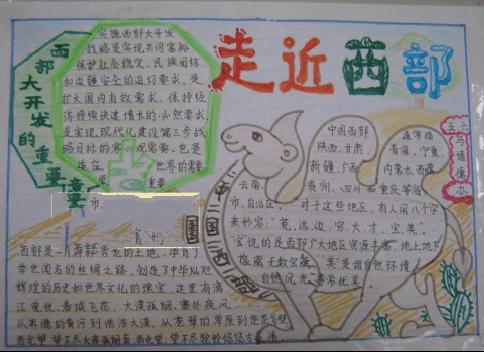 走近西部
西部大开发的重要
实施西部大开发
战略是实现共同富裕、
保护社会稳定、民族团结
和边疆安全的迫切要求，是
扩大国内有效需求，保持经
济持续快速增长的必然要求，
是实现现代化建设第三步战
略目标的客观需要，也是
世界的需要
重要
中国西部
通常指
陕西、甘肃、
青海、宁夏、
新疆、广西、
内蒙古、西藏、
云南、
贵州、四川和重庆等省
市、自治区。对于这些地区，有人用八个字
来形容："荒、远、边、穷、大、才、宝、美"。
"宝"说的是西部广大地区资源丰富，地上地下
蕴藏无数宝藏，"美"是指自然环境、
自然风光非常优美。
五、六
市
西部是一片神奇古老的土地，孕育了
举世闻名的丝绸之路，创造了中华灿烂
辉煌的历史和世界文化的瑰宝，这里有漓
江夜航、春城飞花、大漠孤烟、塞外夜风
从奔腾的黄河到浩浩大漠，从苍翠的草原到
西北望，望不尽大漠孤烟直，西北望，望不尽驼铃悠悠古